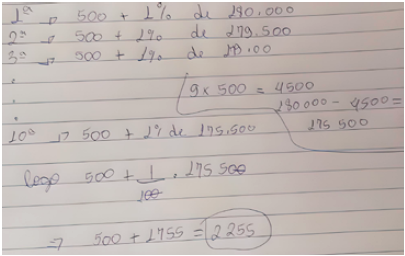 1ª → 500 + 1% de 180.000
2ª → 500 + 1% de 179.500
3ª → 500 + 1% de 179.00
.
.
.
9 x 500 = 4500
180 000 - 4500 =
175 500
10ª → 500 + 1% de 175.500
logo 500 + 1/100 . 175 500
⇒ 500 + 1755 = 2255